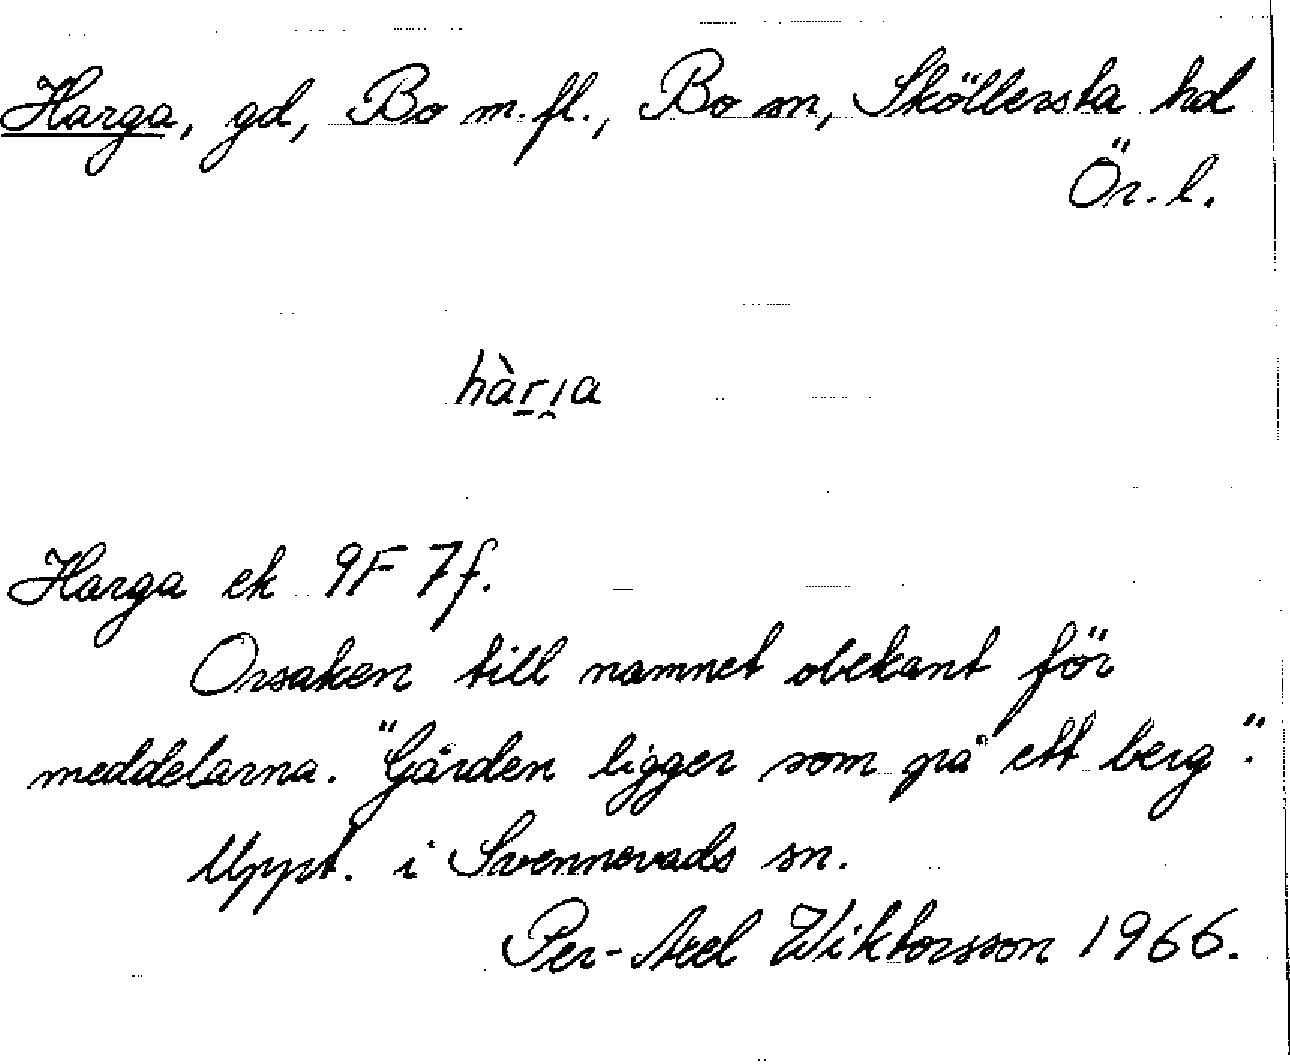 Harga, gd, Bo m.fl., Bo sn, Sköllersta hd
Ör. l.
hàr̲ı̯a
Harga ek 9F 7f.
Orsaken till namnet obekant för
meddelarna. "Gården ligger som på ett berg".
Uppt. i Svennevads sn.
Per-Axel Wiktorsson 1966.